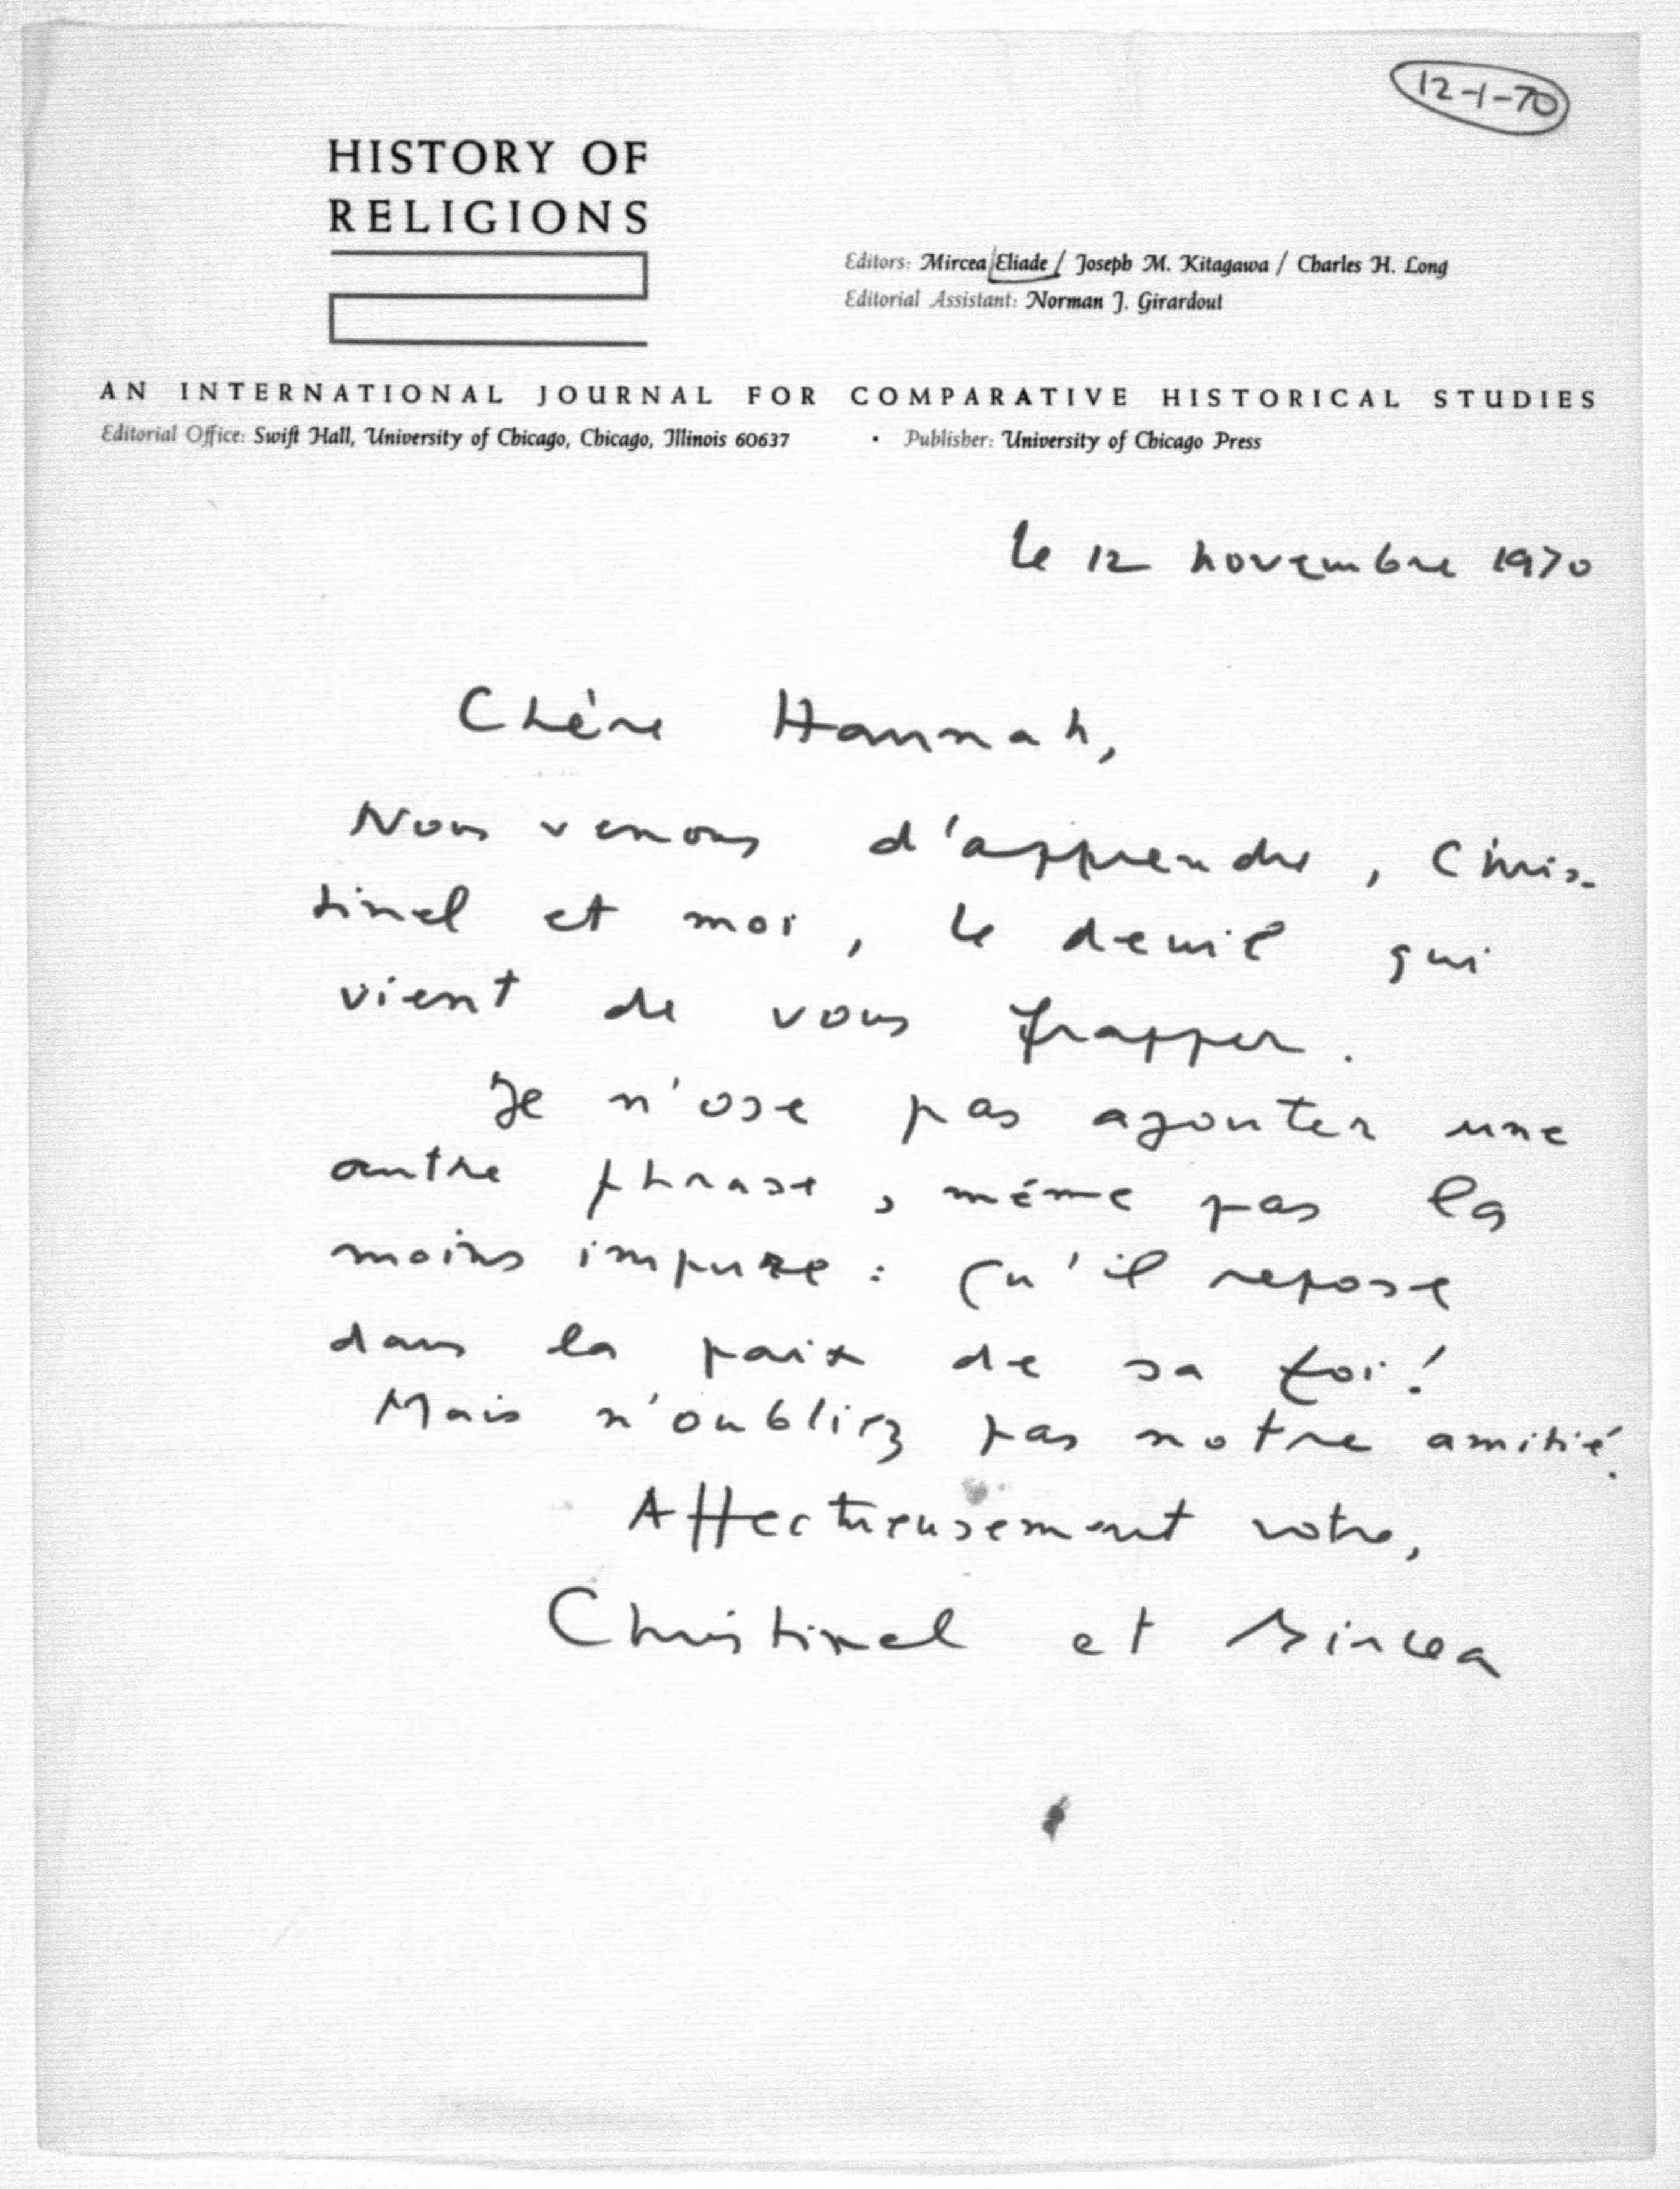 12-1-70
HISTORY OF
RELIGIONS
Editors: Mircea Eliade / Joseph M. Kitagawa / Charles H. Long
Editorial Assistant: Norman J. Girardout
AN INTERNATIONAL JOURNAL FOR COMPARATIVE HISTORICAL STUDIES
Editorial Office: Swift Hall, University of Chicago, Chicago, Illinois 60637 • Publisher: University of Chicago Press
le 12 novembre 1970
Chère Hannah,
Nous venons d'apprendre, Chris-
tinel et moi, le deuil qui
vient de vous frapper.
Je n'ose pas ajouter une
autre phrase, même pas la
moins impure : Qu'il repose
dans la paix de sa foi!
Mais n'oubliez pas notre amitié.
Affectueusement votre,
Christinel et Mircea